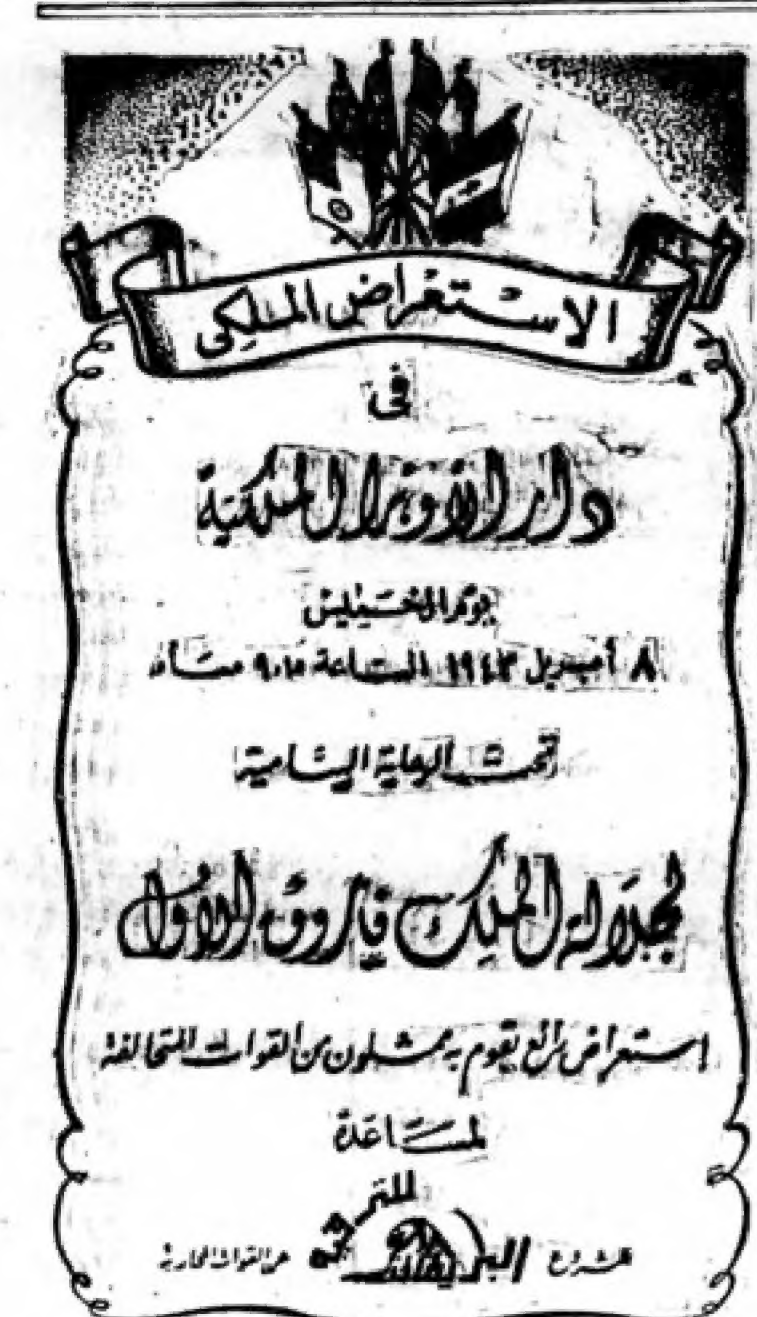 الاستعراض الملكى
فى
دار الأوبرا الملكية
يوم الخميس
٨ أبريل ١٩٤٣ الساعة ٩ مساء
تحت الرعاية السامية
لجلالة الملك فاروق الأول
إستعراض رائع يقوم به ممثلون من القوات المتحالفة
لمساعدة
مشروع البر للترفيه عن القوات المحاربة